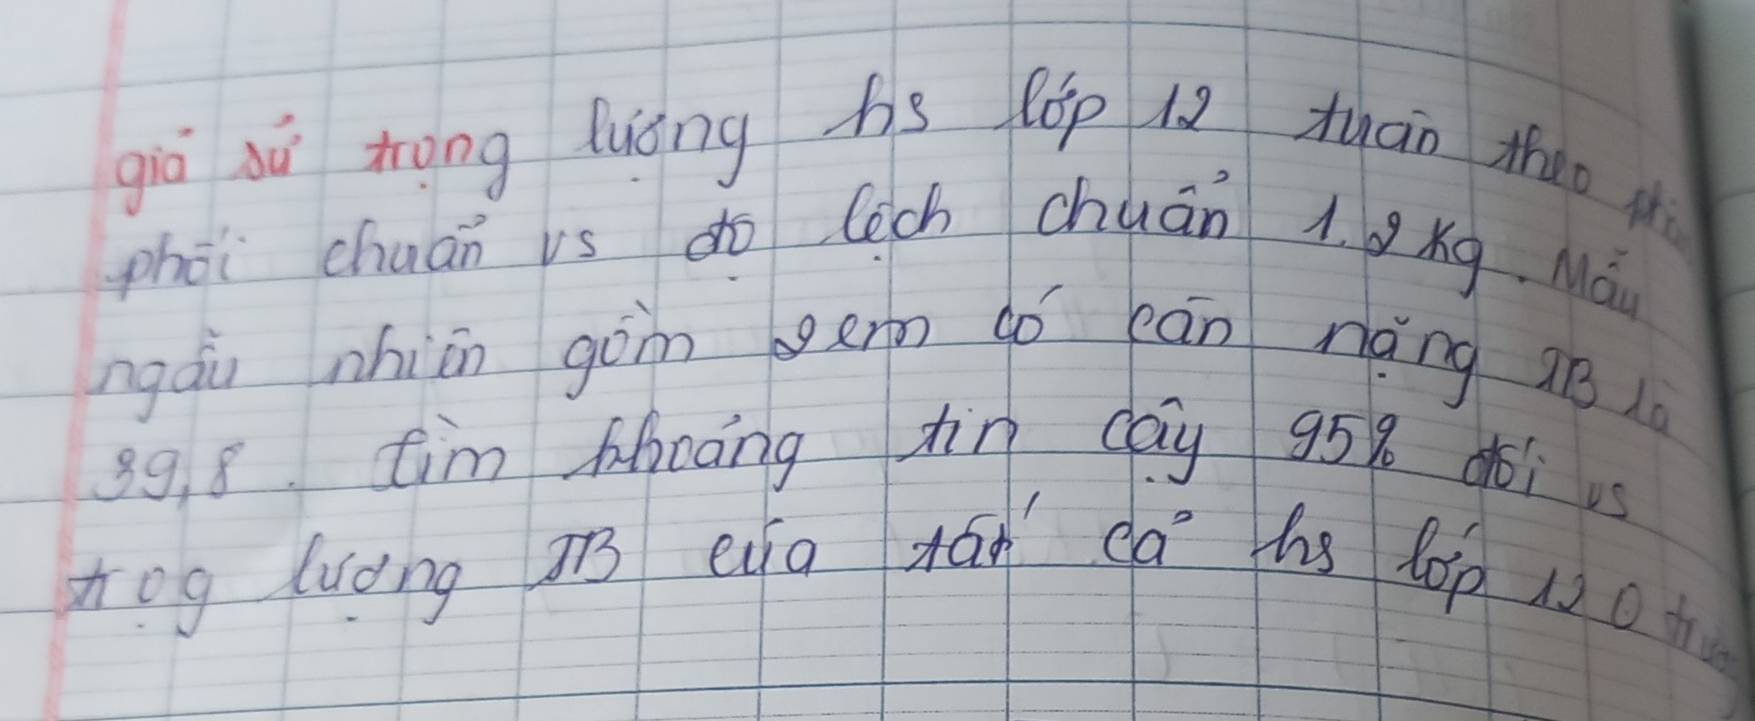 giả sử trọng lượng hs lớp 12 tuân theo phân
phối chuẩn vs độ lệch chuẩn 1.2 kg. Mẫu
ngẫu nhiên gồm 9 em có cân nặng TB là
39,8. tìm khoảng tin cậy 95% đối vs
trọg lượng TB của tất cả hs lớp 12 ở